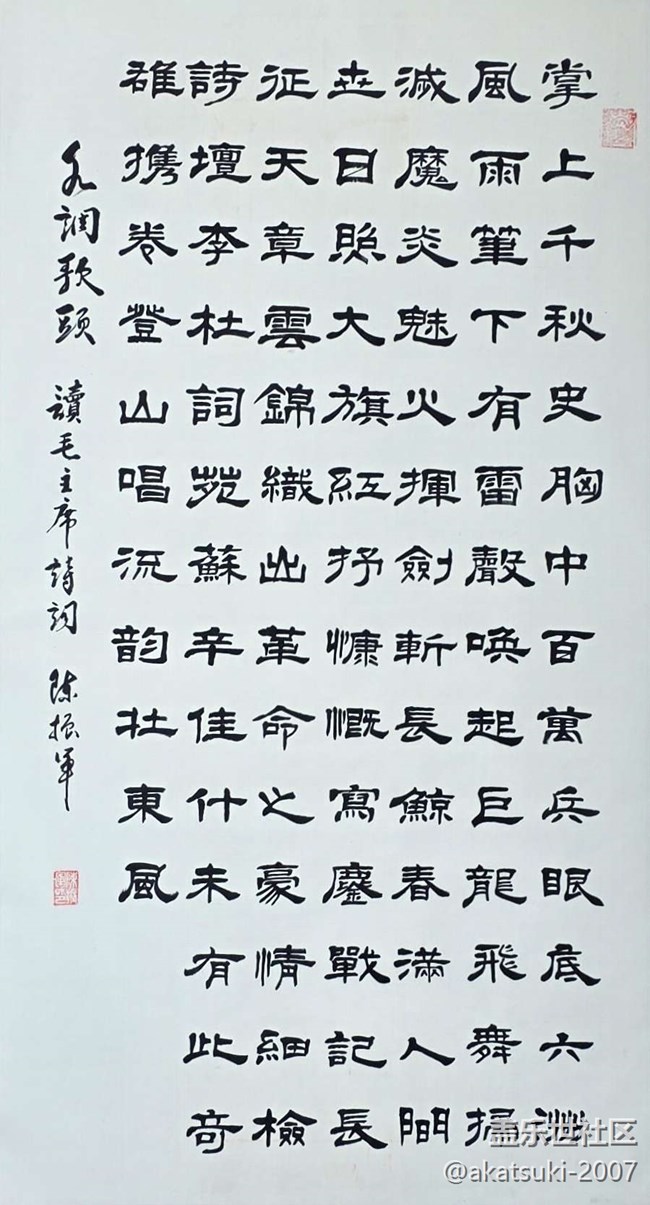 掌上千秋史胸中百萬兵眼底六洲
風雨筆下有雷聲喚起巨龍飛舞掃
滅魔炎魅火揮劍斬長鯨春滿人間
世日照大旗紅抒慷慨寫鏖戰記長
征天章雲錦織出革命之豪情細檢
詩壇李杜詞苑蘇辛佳什未有此奇
雄携卷登山唱流韵壮東風
水調歌頭 讀毛主席詩詞 陳振軍
盖乐世社区
@akatsuki-2007